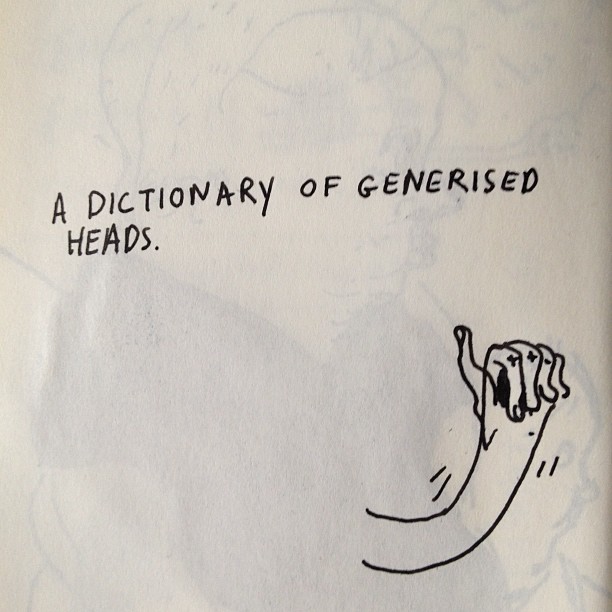 A DICTIONARY OF GENERISED
HEADS.